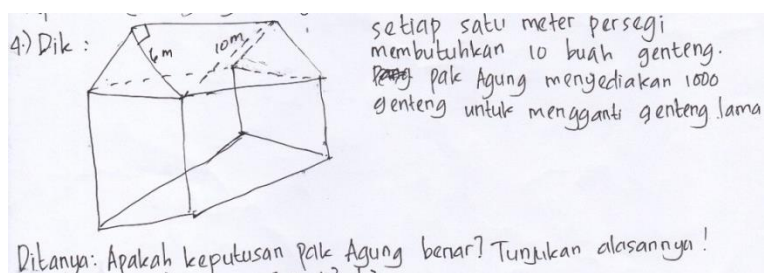 4.) Dik :
6 m
10m
setiap satu meter persegi
membutuhkan 10 buah genteng.
pak Agung menyediakan 1000
genteng untuk mengganti genteng lama
Ditanya: Apakah keputusan Pak Agung benar? Tunjukan alasannya!